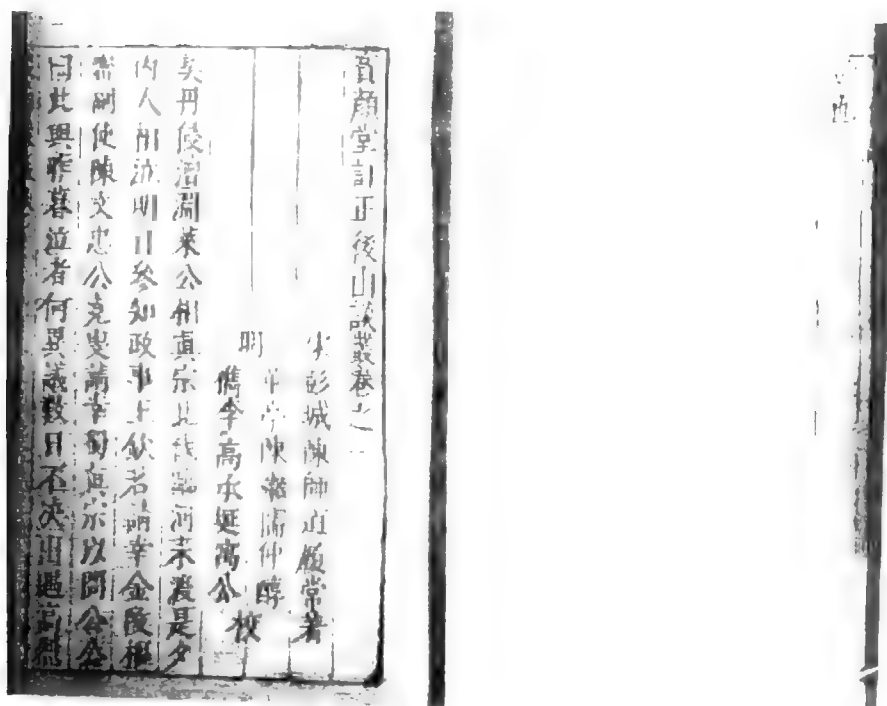 寶顏堂訂正後山談叢卷之一
宋彭城陳師道履常著
華亭陳繼儒仲醇
明
檇李高承埏寓公
校
契丹侵澶淵萊公相真宗北伐臨河未渡是夕
內人相泣明日參知政事王欽若請幸金陵樞
密副使陳文忠公堯叟請幸蜀真宗以問公公
曰此與昨暮泣者何異議數日不決出遇高烈